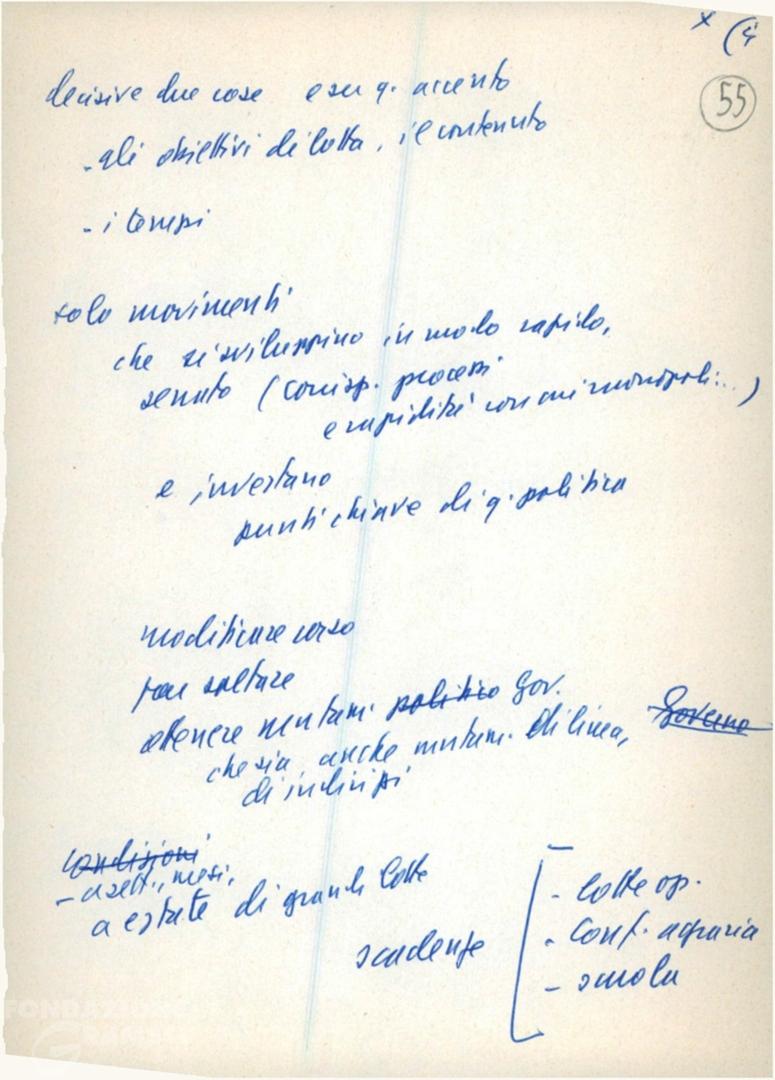 x (4
55
decisive due cose e su q. accento
- gli obiettivi di lotta, il contenuto
- i tempi
solo movimenti
che si sviluppino in modo rapido,
serrato (corrisp. processi
e rapidità con cui monopoli...)
e investano
punti chiave di q. politica
modificare corso
far saltare
ottenere mutam. politico Gov.
che sia anche mutam. di linea, Governo
di indirizzi
Condizioni
- a sett., mesi,
a estate di grandi lotte
scadenze
- lotte op.
- Conf. agraria
- scuola
FONDAZIONE
GRAMSCI